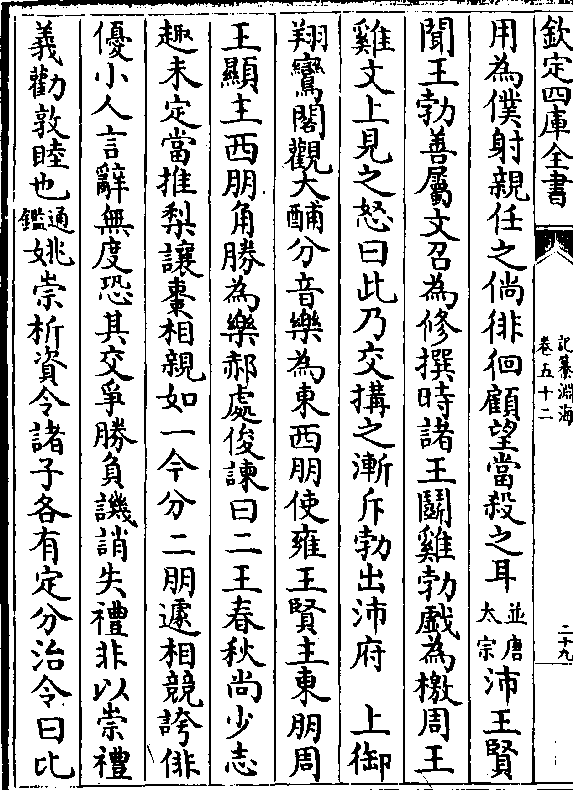 欽定四庫全書
記纂淵海
卷五十二
二十九
用為僕射親任之倘徘徊顧望當殺之耳並唐太宗沛王賢
聞王勃善屬文召為修撰時諸王鬭雞勃戲為檄周王
雞文上見之怒曰此乃交搆之漸斥勃出沛府 上御
翔鸞閣觀大酺分音樂為東西朋使雍王賢主東朋周
王顯主西朋角勝為樂郝處俊諫曰二王春秋尚少志
趣未定當推梨讓棗相親如一今分二朋遽相競誇俳
優小人言辭無度恐其交爭勝負譏誚失禮非以崇禮
義勸敦睦也通鑑姚崇析資令諸子各有定分治令曰比